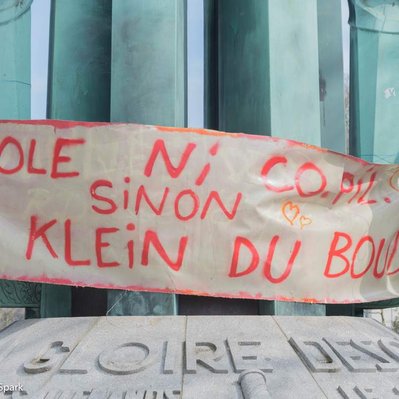 OLE Ni CO.PiL.
SiNON
KLEiN DU BOU
GLOIRE DES
Spark